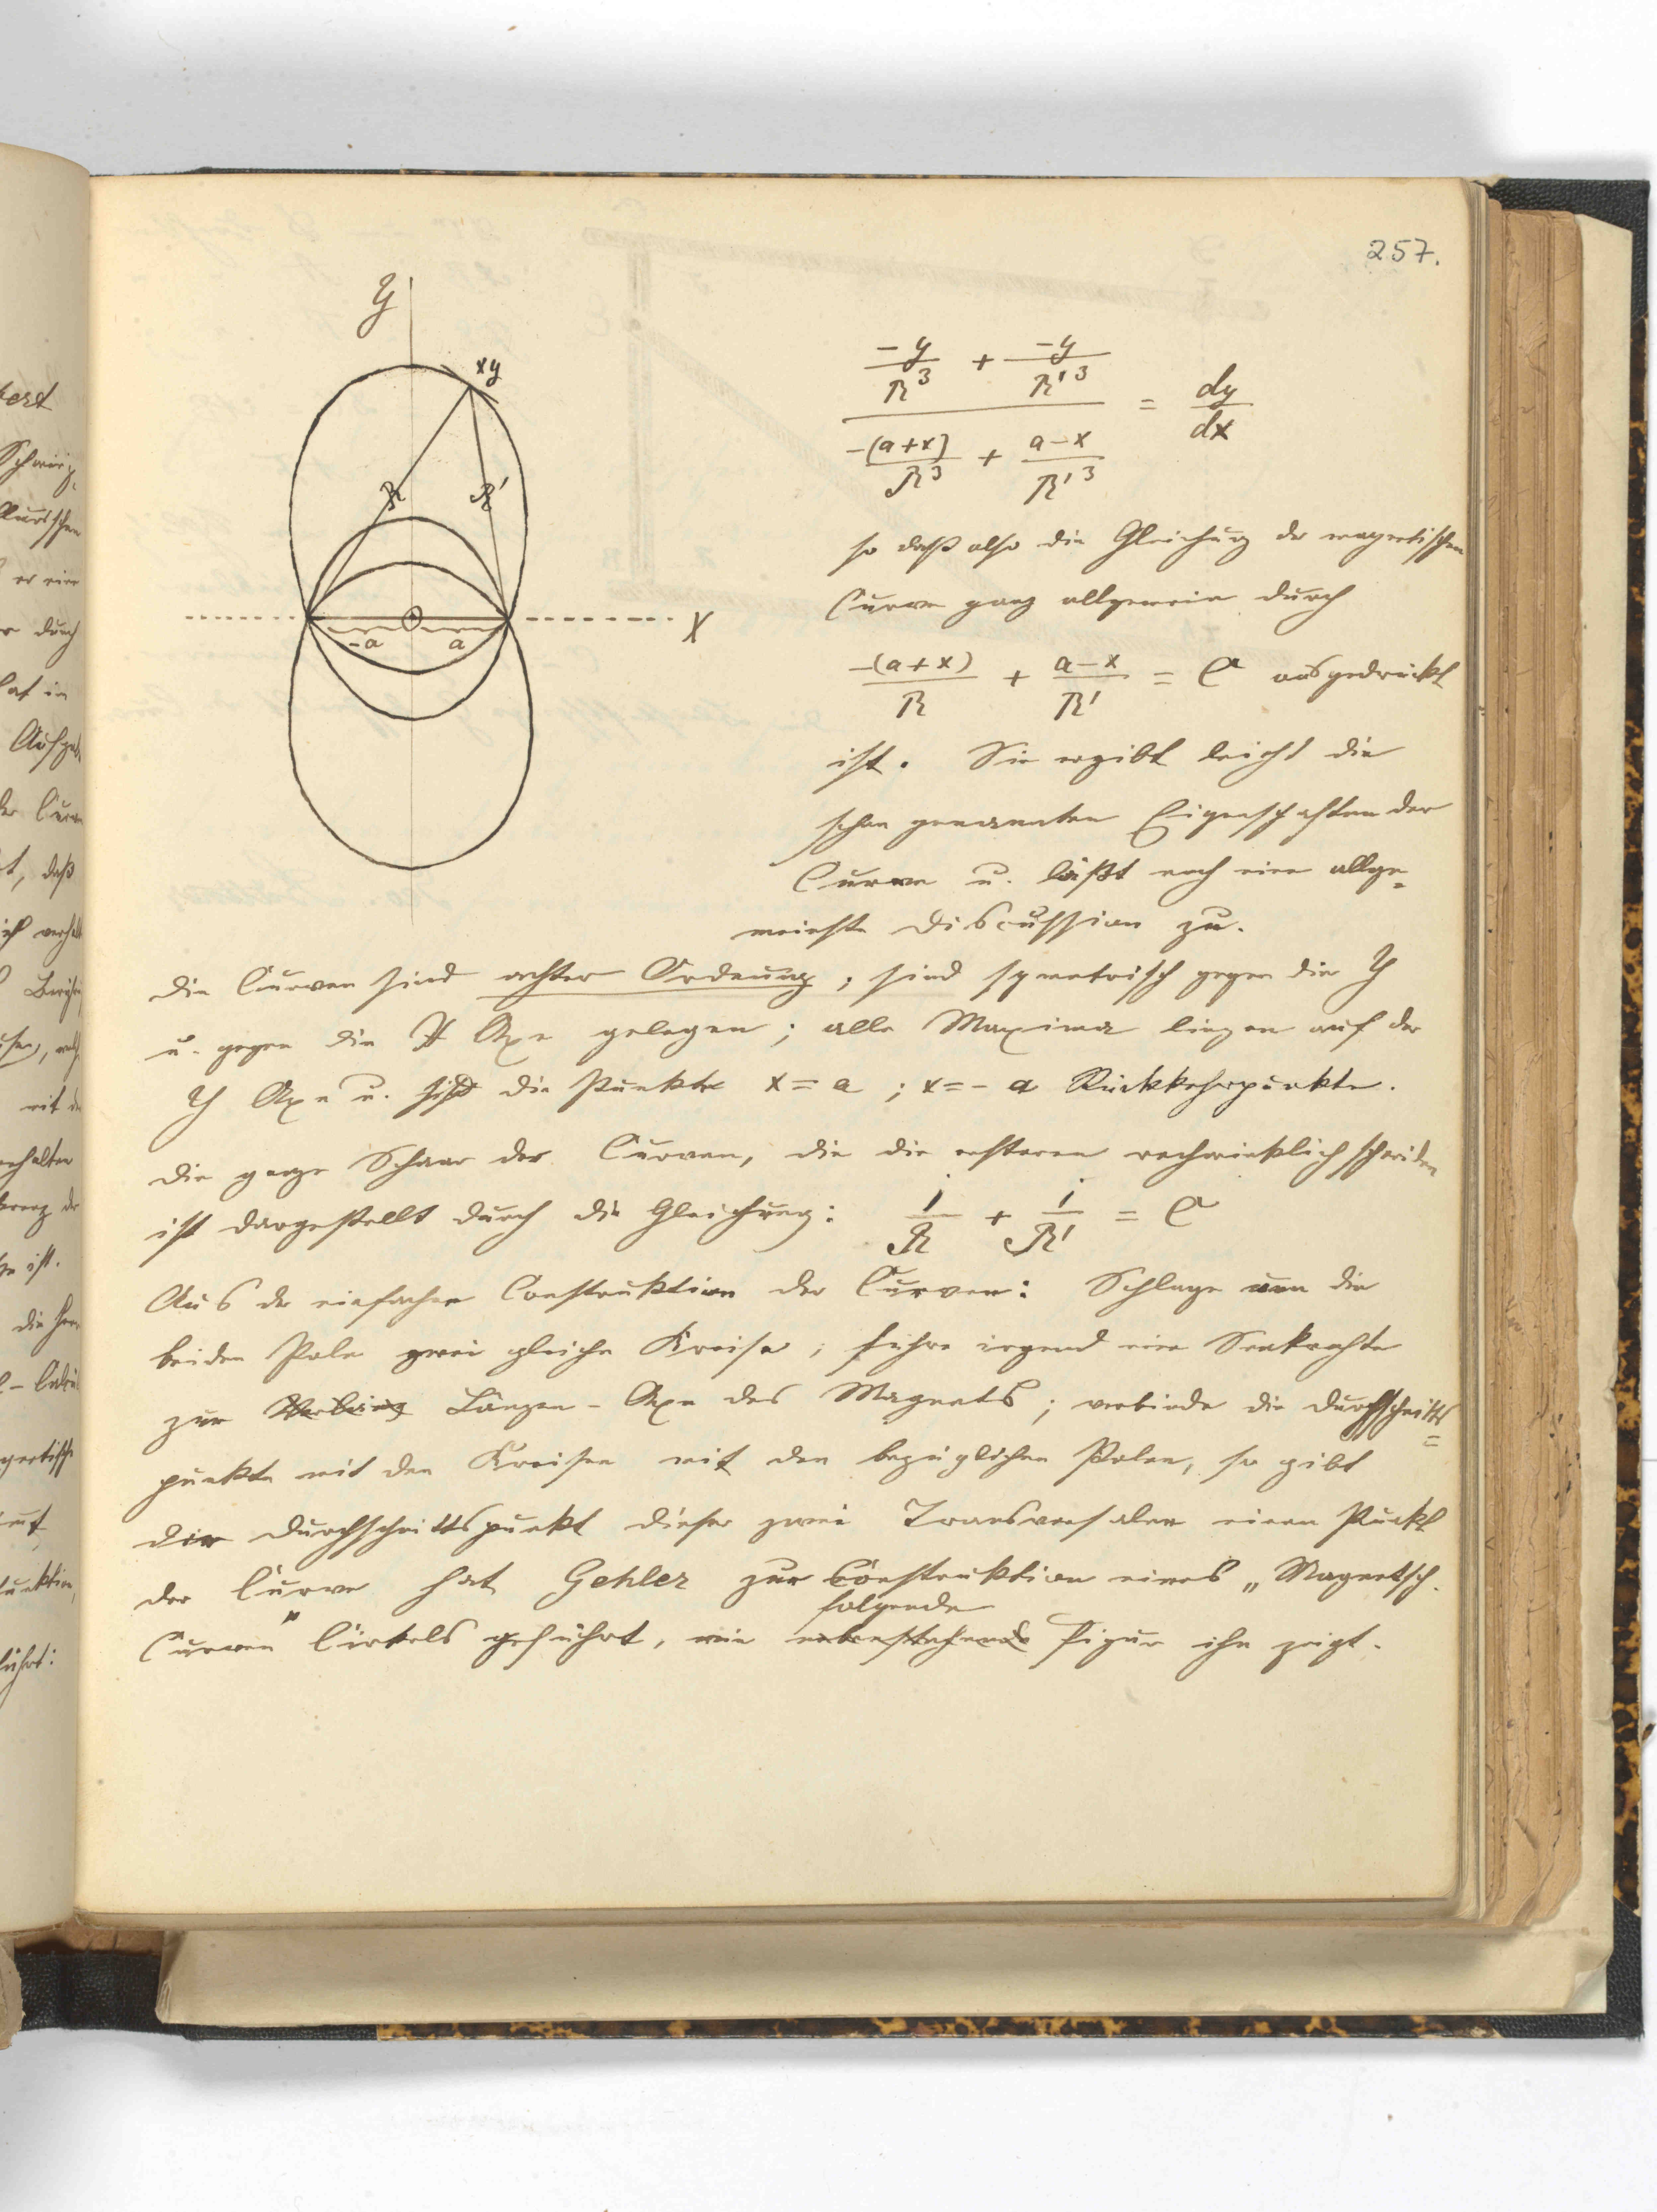 257.
Y
xy
R R'
-a a
X
-y/R³ + -y/R'³
= dy/dx
-(a+x)/R³ + a-x/R'³
so daß also die Gleichung der magnetischen
Curve ganz allgemein durch
-(a+x)/R + a-x/R' = C ausgedrückt
ist. Sie ergibt leicht die
schon genannten Eigenschaften der
Curve u. läßt noch eine allge=
meinste Discussion zu.
Die Curven sind achter Ordnung; sind symetrisch gegen die Y
u. gegen die X Axe gelegen; alle Maxima liegen auf der
Y Axe u. die Punkte x = a ; x = - a Rückkehrpunkte.
Die ganze Schaar der Curven, die die ersteren rechwinklich schneiden
ist dargestellt durch die Gleichung: 1/R + 1/R' = C
Aus der einfachen Construktion der Curven: Schlage um die
beiden Pole zwei gleiche Kreise; führe irgend eine Senkrechte
zur Längen-Axe des Magnets; verbinde die Durchschnitts
=
punkte mit den Kreisen mit den bezüglichen Polen, so gibt
der Durchschnittspunkt dieser zwei Transversalen einen Punkt
der Curve hat Gehler zur Construktion eines „Magnetsch.
folgende
Curven" Cirkels geführt, wie nebenstehende Figur ihn zeigt.